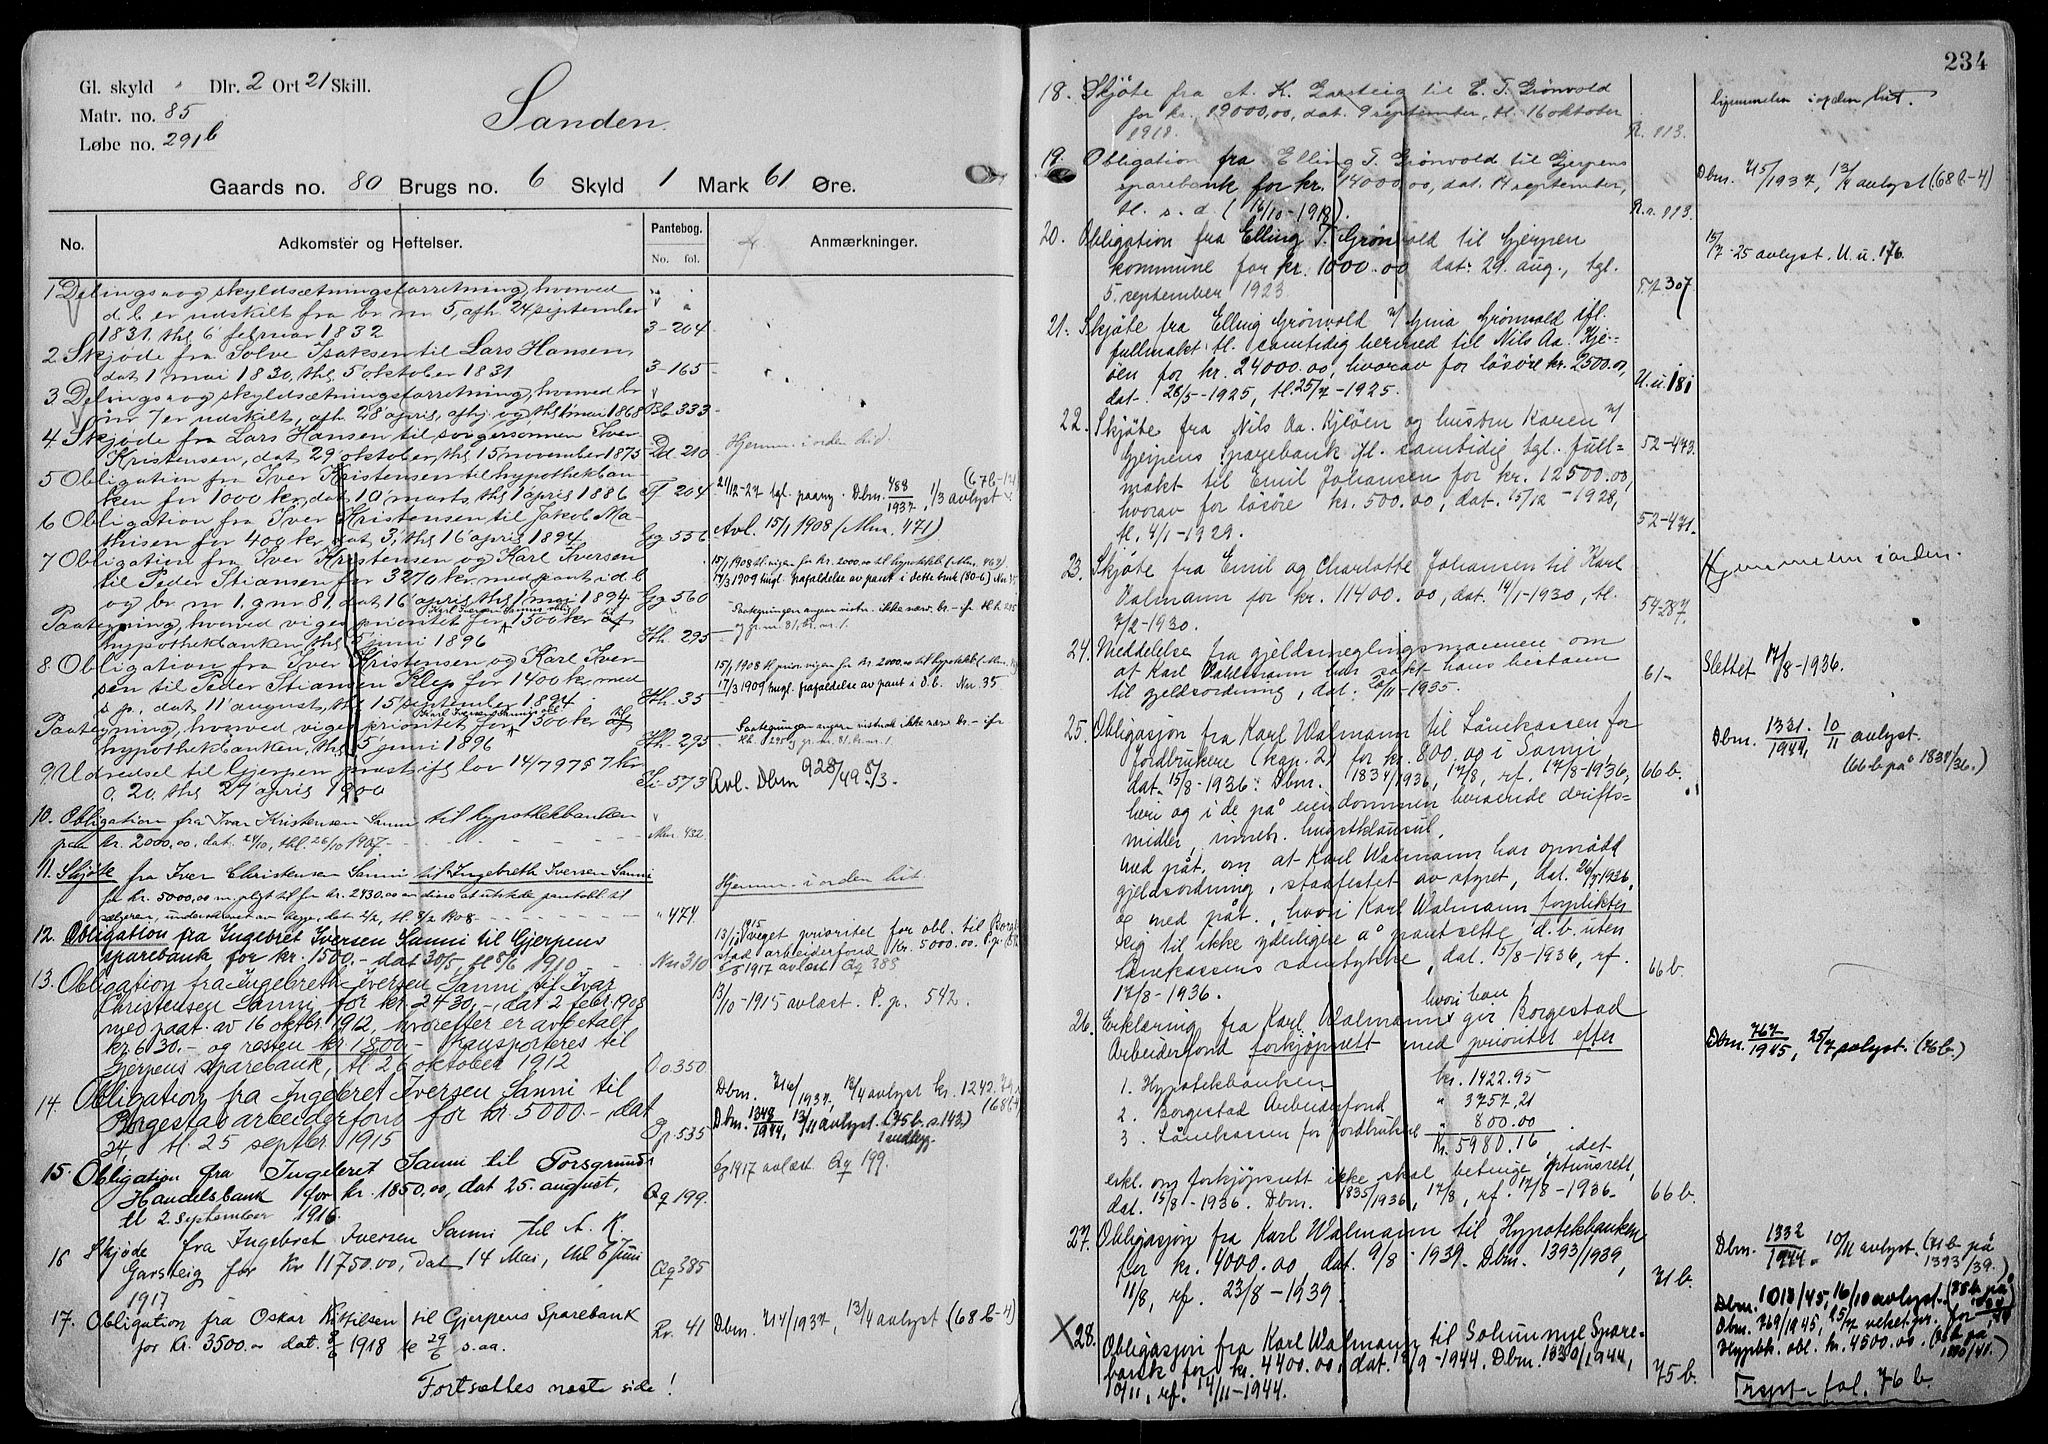 Gl. skyld " Dlr. 2 Ort 21 Skill.
Matr. no. 85
Løbe no. 291b
Sanden.
Gaards no. 80 Brugs no. 6 Skyld 1 Mark 61 Øre.
No. Adkomster og Heftelser. Pantebog. No. fol. Anmærkninger.
1 Delings- og skyldsætningsforretning, hvorved
d. b. er udskilt fra br. nr. 5, afh. 24 september
1831, thl. 6 februar 1832 3-204
2 Skjøde fra Solve Isaksen til Lars Hansen,
dat 1 mai 1830, thl. 5 oktober 1831 3-165
3 Delings- og skyldsætningsforretning, hvorved br.
nr. 7 er udskilt, afh. 28 april, afhj. og thl. 1 mai 1868 Bb 333
4 Skjøde fra Lars Hansen til svigersønnen Iver
Kristensen, dat 29 oktober, thl. 15 november 1875 Dd. 210 Hjemm. i orden hid.
5 Obligation fra Iver Kristensen til hypothekban-
ken for 1000 kr, dat 10 marts, thl. 1 april 1886 Ff 204 21/12-27 tgl. paany. Dbm. 488/1937, 1/3 avlyst
6 Obligation fra Iver Kristensen til Jakob Ma-
thisen for 400 kr, dat 3, thl. 16 april 1894 Gg 556 Avl. 15/1 1908 (Mm. 471)
7 Obligation fra Iver Kristensen og Karl Iversen
til Peder Stiansen for 3270 kr. med pant i d. b.
og br. nr 1, g. nr 81, dat 16 april, thl. 1 mai 1894 Gg 560
Paategning, hvorved viges prioritet for 1500 kr til
hypothekbanken, thl. 5 juni 1896 Hh. 295
8 Obligation fra Iver Kristensen og Karl Iver-
sen til Peder Stiansen Klep for 1400 kr, med
s. p., dat 11 august, thl. 15 september 1894 Hh. 35 17/3 1909 tingl. frafaldelse av pant i d. b. Nn. 35
Paategning, hvorved viges prioritet for 1500 kr til
hypothekbanken, thl. 5 juni 1896 Hh. 295
9 Udredsel til Gjerpen præstifl. lov 14/7 97 57 kr.
0.20, thl. 27 april 1900 Ii-573 Avl. Dbm 928/49 5/3.
10. Obligation fra Ivar Kristensen Sanni til hypothekbanken
paa kr. 2000.00, dat. 24/10, thl. 26/10 1907 Mm. 432
11. Skjøte fra Iver Christensen Sanni til Ingebreth Iversen Sanni
for kr. 5000,00 " 474. Hjemm. i orden hit.
12. Obligation fra Ingebret Iversen Sanni til Gjerpens
sparebank for kr. 1500,- dat 30/5, tl. 8/6 1910. Nn 310 13/10 1915 veget prioritet for obl. til Borge-
stad arbeiderfond kr. 5000.00. P. p.
1917 avlæst Qq 385
13. Obligation fra Ingebreth Iversen Sanni til Ivar
Christensen Sanni for kr. 2430,-, dat 2 febr. 1908 13/10-1915 avlæst. P. p. 542.
med paat. av 16 oktbr. 1912, hvorefter er avbetalt
kr. 630.- og resten kr 1800,- transporteres til
Gjerpens sparebank, tl. 26 oktober 1912 Oo 350
14. Obligation fra Ingebret Iversen Sanni til
Borgestad arbeiderfond for kr. 5000.- dat Dbm. 716/1937, 13/4 avlyst kr. 1242.79
24, tl. 25 septbr. 1915 Pp 535 Dbm. 1348/1944, 13/11 avlyst. (75 b. s. 143.)
15. Obligation fra Ingebret Sanni til Porsgrunds
Handelsbank for kr. 1850.00, dat 25. august, 1917 avlæst Qq 199.
tl 2 september 1916. Qq 199.
16 Skjøde fra Ingebret Iversen Sanni til A. K.
Garsteig for Kr 11750.00, dat 14 Mai, thl 6 Juni
1917 Qq 385
17. Obligation fra Oskar Kittilsen til Gjerpens Sparebank
for kr. 3500.- dat. 8/6 1918 tl 29/6 s.aa. Rr. 41 Dbm. 714/1937, 13/4 avlyst (68 b-4)
Fortsættes næste side!
234
18. Skjøte fra A. K. Garsteig til E. T. Grønvold
for kr. 19000,00, dat. 9 september, tl. 16 oktober
1918. R. 113. hjemmelen i orden hit.
19. Obligation fra Elling T. Grønvold til Gjerpens
sparebank for kr. 14000.00, dat. 14 september, Dbm. 715/1937, 13/4 avlyst (68 b-4)
tl. s. d. (16/10-1918). R.r. 113.
20. Obligation fra Elling T. Grønvold til Gjerpen
kommune for kr. 1000.00 dat. 29. aug., tgl. 15/7-25 avlyst. U. u. 176.
5. september 1923. T.t. 307
21. Skjøte fra Elling Grønvold v/ Gina Grønvold ifl.
fullmakt tl. samtidig hermed til Nils Aa. Kjle-
øen for kr. 24000.00, hvorav for løsøre kr. 2500.00,
dat. 28/5-1925, tl. 25/7-1925. U. u. 181
22. Skjøte fra Nils Aa. Kjleøen og hustru Karen v/
Gjerpens Sparebank ifl. samtidig tgl. full- 52-473.
makt til Emil Johansen for kr. 12500.00,
hvorav for løsøre kr. 500.00, dat. 15/12-1928,
tl. 4/1-1929. 52-471.
23. Skjøte fra Emil og Charlotte Johansen til Karl Hjemmelen i orden.
Valmann for kr. 11400.00, dat. 14/1-1930, tl.
7/2-1930. 54-287.
24. Meddelelse fra gjeldsmeglingsmannen om
at Karl Vahlmann har søkt hans bestann 61- Slettet 17/8-1936.
til gjeldsordning, dat. 20/11-1935.
25. Obligasjon fra Karl Walmann til Lånekassen for
Jordbrukere (kap. 2) for kr. 800.00 i Sanni, Dbm. 1331/1944, 10/11 avlyst.
dat. 15/8-1936: Dbm. 1834/1936, 17/8, rf. 17/8-1936, 66 b. (66 b på 1834/36.)
heri og i de på eiendommen beroende drifts-
midler, inneh. hugstklausul.
Med påt. om at Karl Walmann har opnådd
gjeldsordning, stadfestet av styret, dat. 26/5 1936,
og med påt., hvori Karl Walmann forplikter
sig til ikke yderligere å pantsette d. b. uten
Lånekassens samtykke, dat. 15/8-1936, rf. 66 b.
17/8-1936.
26. Erklæring fra Karl Walmann, hvori han gir Borgestad
Arbeiderfond forkjøpsrett med prioritet efter Dbm. 767/1945, 25/7 avlyst. (76 b.)
1. Hypotekbanken kr. 1422.95
2. Borgestad Arbeiderfond " 3757,21
3. Lånekassen for Jordbrukere " 800.00
Kr. 5980.16, idet
erkl. om forkjøpsrett ikke skal betinge optrinsrett,
dat. 15/8-1936. Dbm. 1835/1936, 17/8, rf. 17/8-1936. 66 b.
27. Obligasjon fra Karl Walmann til Hypotekbanken
for kr. 4000.00, dat. 9/8-1939. Dbm. 1393/1939, 71 b. Dbm. 1332/1944, 10/11 avlyst (71 b på 1393/39.)
11/8, rf. 23/8-1939.
X 28. Obligasjon fra Karl Walmann til Solum nye Spare- Dbm. 1013/45, 16/10 avlyst.
bank for kr. 4400.00, dat. 19/9-1944. Dbm. 1330/1944, 75 b. Dbm. 769/1945, 25/7 veket pr. for
10/11, rf. 14/11-1944. Hypbk. obl. kr. 4500.00.
Trspt. fol. 76 b.